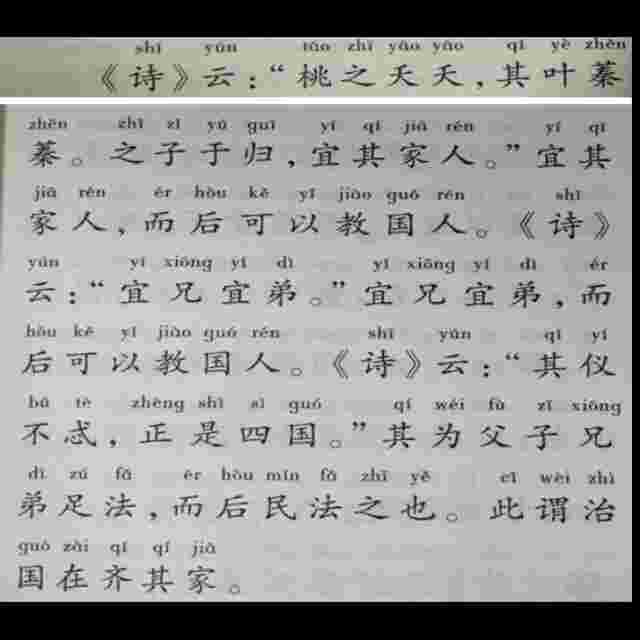 shī yún táo zhī yāo yāo qí yè zhēn
《诗》云：“桃之夭夭，其叶蓁
zhēn zhī zǐ yú guī yí qí jiā rén yí qí
蓁。之子于归，宜其家人。”宜其
jiā rén ér hòu kě yǐ jiào guó rén shī
家人，而后可以教国人。《诗》
yún yí xiōng yí dì yí xiōng yí dì ér
云：“宜兄宜弟。”宜兄宜弟，而
hòu kě yǐ jiào guó rén shī yún qí yí
后可以教国人。《诗》云：“其仪
bú tè zhèng shì sì guó qí wéi fù zǐ xiōng
不忒，正是四国。”其为父子兄
dì zú fǎ ér hòu mín fǎ zhī yě cǐ wèi zhì
弟足法，而后民法之也。此谓治
guó zài qí qí jiā
国在齐其家。